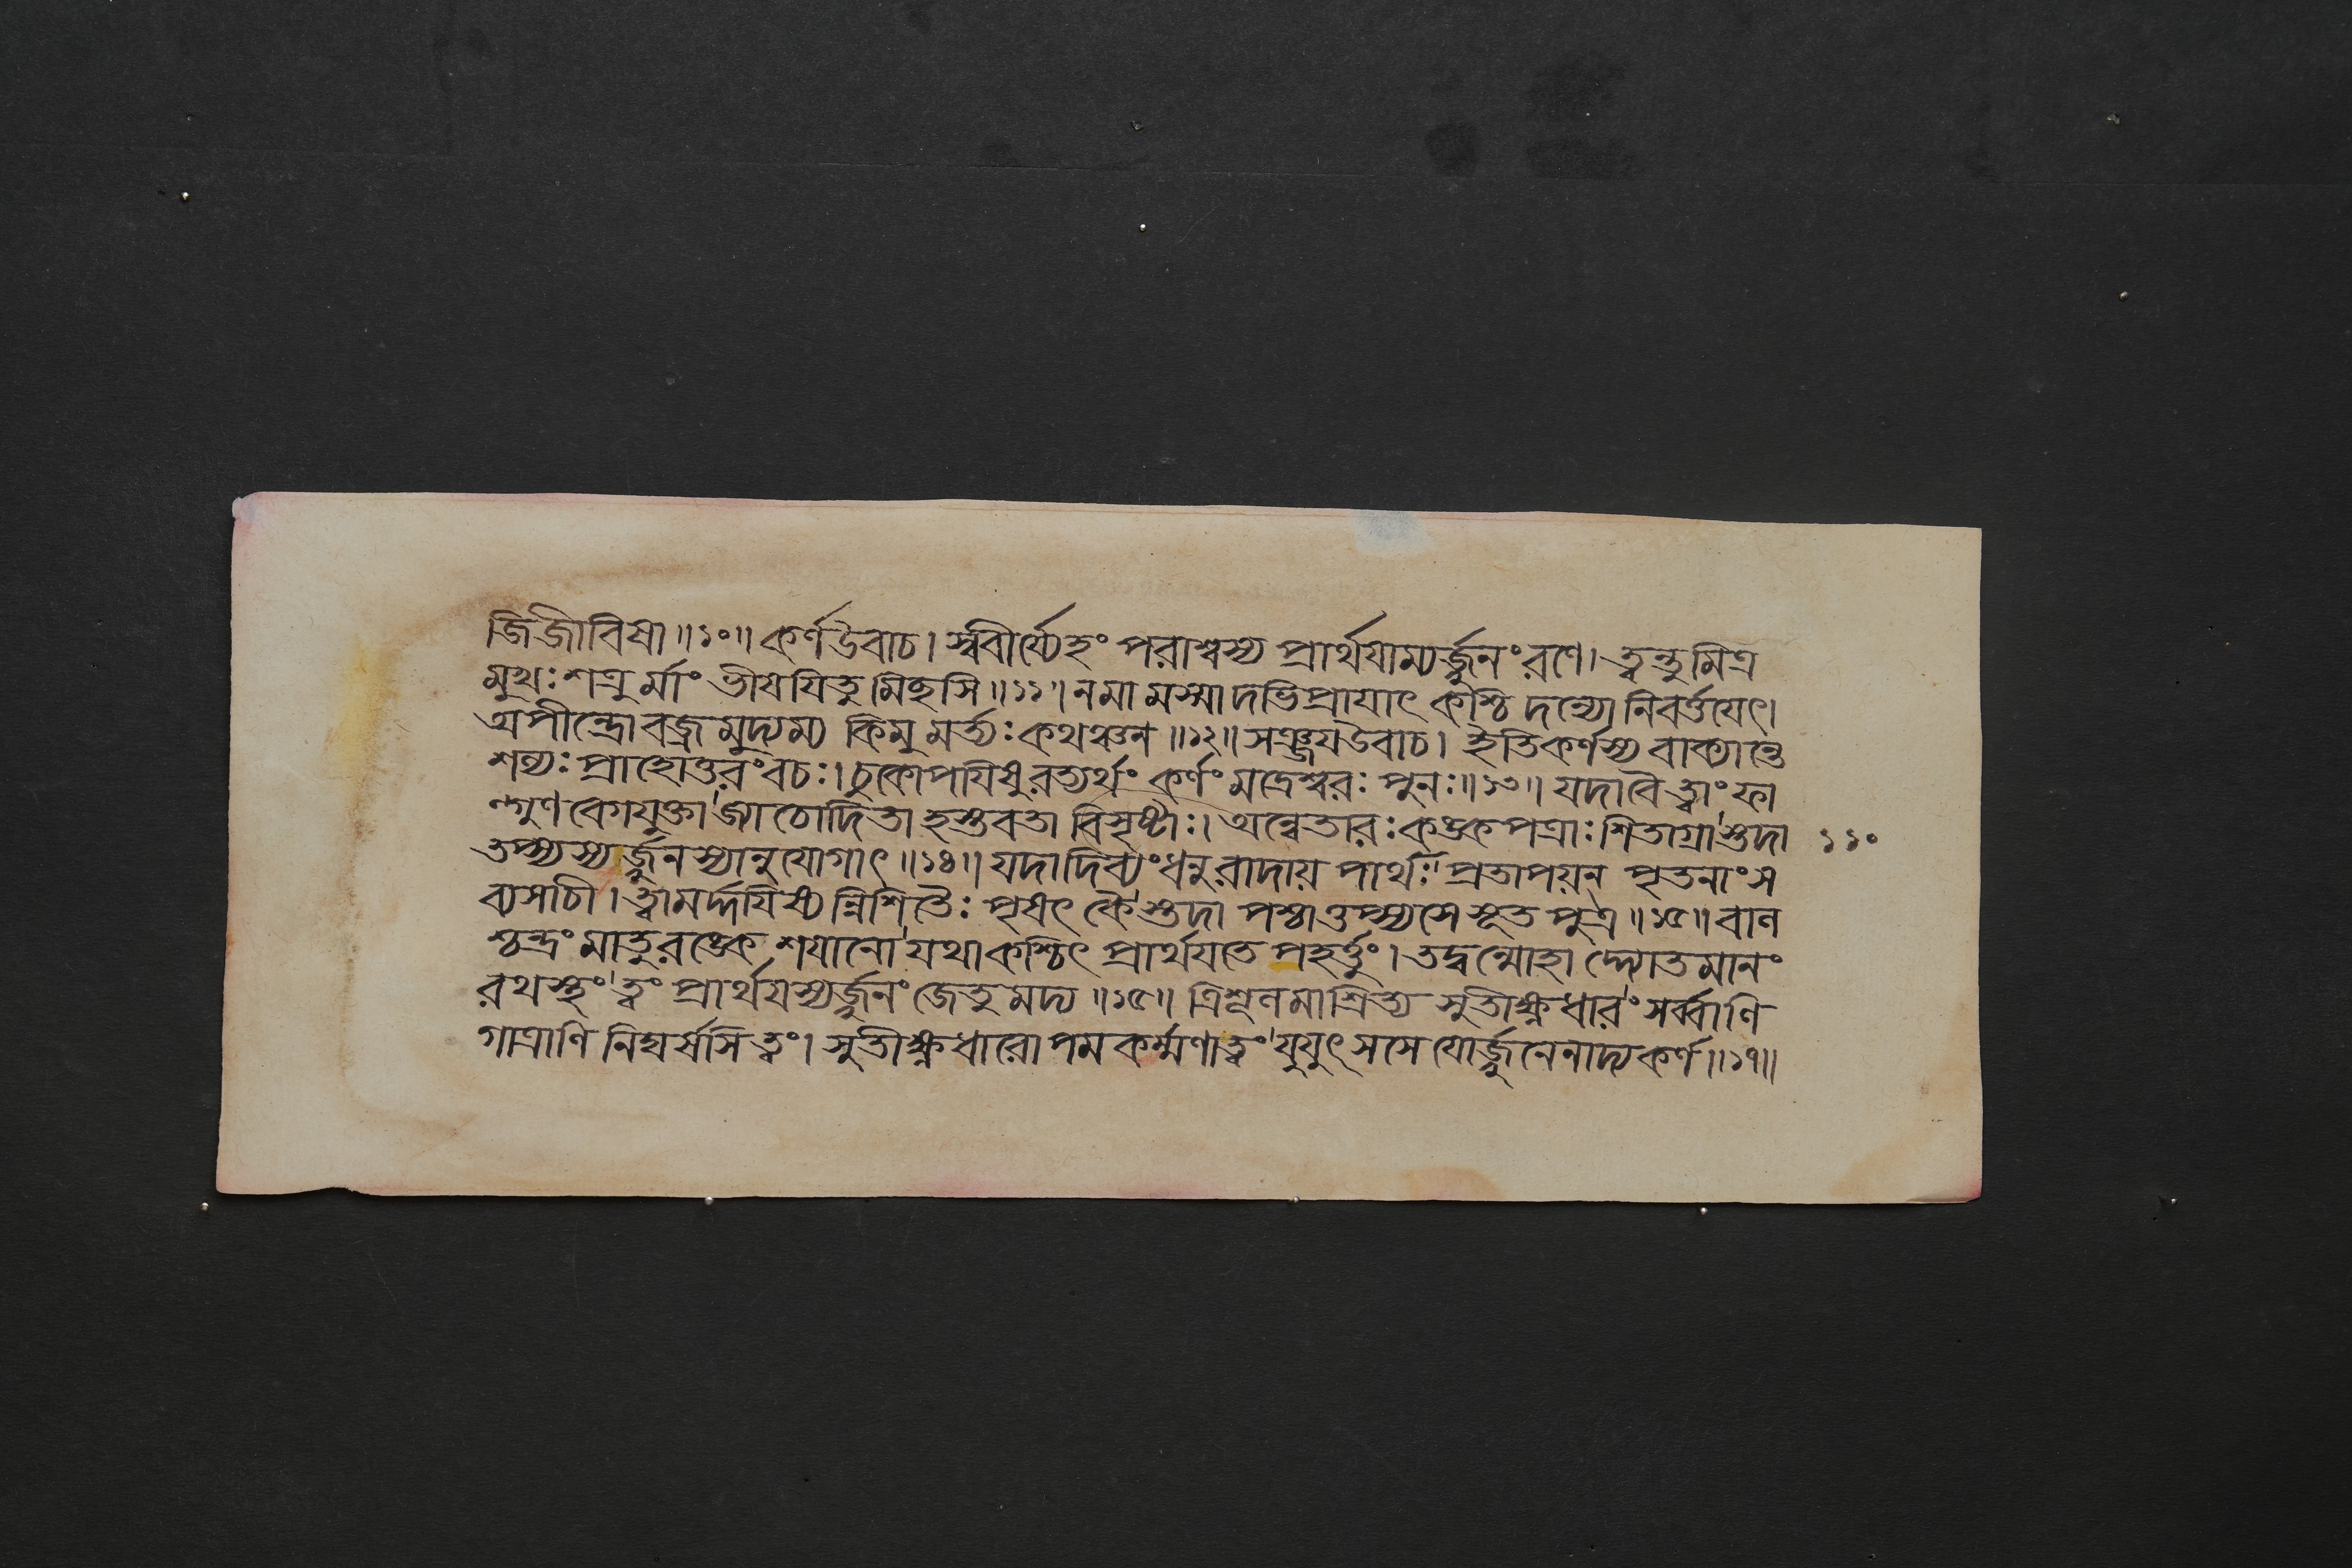 জিজীবিষা॥১০॥কর্ণউবাচ।স্ববীর্য্যেহং পরাশ্বস্য প্রার্থযাম্যর্জ্জুনংরণে।ত্বন্তুমিত্র
মুখঃশত্রুর্মাং ভীষযিতুমিহসি॥১১॥নমামস্মাদভিপ্রাযাৎ কশ্চিদন্যো নিবর্ত্তযেৎ।
অপীন্দ্রোবজ্রমুদ্যম্য কিমুমর্ত্যঃকথঞ্চন॥১২॥সঞ্জযউবাচ। ইতিকর্ণস্য বাক্যান্তে
শল্যঃপ্রাহোত্তরংবচঃ।চুকোপযিষুরত্যর্থং কর্ণং মদ্রেশ্বরঃপুনঃ॥১৩॥যদাবৈ ত্বাংফা
ল্গুণবেগযুক্তা জ্যাচোদিতা হস্তবতা বিসৃষ্টাঃ।অন্বেতারঃকঙ্কপত্রাঃশিতাগ্রাস্তদা ১১০
তপ্স্যস্যর্জ্জুনস্যানুযোগাৎ॥১৪॥যদাদিব্যংধনুরাদায় পার্থঃ প্রতাপয়ন্ পৃতনাংস
ব্যসাচী।ত্বামর্দ্দযিষ্যন্নিশিতৈঃপৃষৎকৈস্তদা পশ্চাত্তপ্স্যসে সূতপুত্র॥১৫॥বাল
শ্চন্দ্রং মাতুরঙ্কে শযানো যথাকশ্চিৎ প্রার্থযতে পহর্ত্তুং।তদ্বন্মোহাদ্দ্যোতমানং
রথস্থং ত্বং প্রার্থযস্যর্জ্জুনং জেতুমদ্য॥১৬॥ ত্রিশূলমাশ্রিত্য সুতীক্ষ্ণধারং সর্ব্বাণি
গাত্রাণি নিঘর্ষসি ত্বং।সুতীক্ষ্ণধারোপমকর্ম্মণা ত্বং যুযুৎসসে যোর্জ্জুনেনাদ্য কর্ণ॥১৭॥